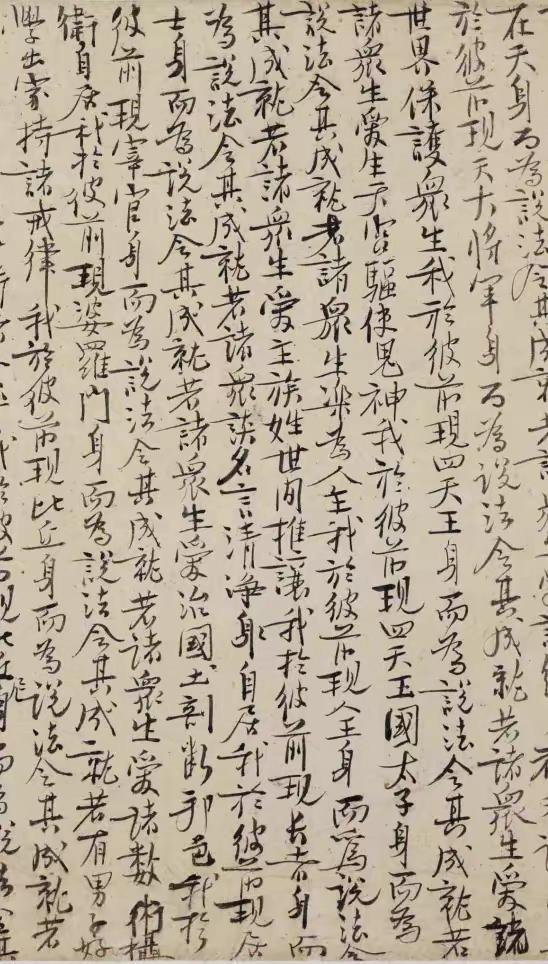 在天身而為說法令其成就若諸
於彼前現天大將軍身而為說法令其成就若諸眾生愛諸
世界保護眾生我於彼前現四天王身而為說法令其成就若
諸眾生愛生天宮驅使鬼神我於彼前現四天王國太子身而為
說法令其成就若諸眾生樂為人王我於彼前現人王身而為說法令
其成就若諸眾生愛主族姓世間推讓我於彼前現長者身而
為說法令其成就若諸眾談名言清淨身自居我於彼前現居
士身而為說法令其成就若諸眾生愛治國土剖斷邦邑我於
彼前現宰官身而為說法令其成就若諸眾生愛諸數術攝
衛身居我於彼前現婆羅門身而為說法令其成就若有男子好
學出家持諸戒律我於彼前現比丘身而為說法令其成就若
我於彼前現比丘尼身而為說法令其